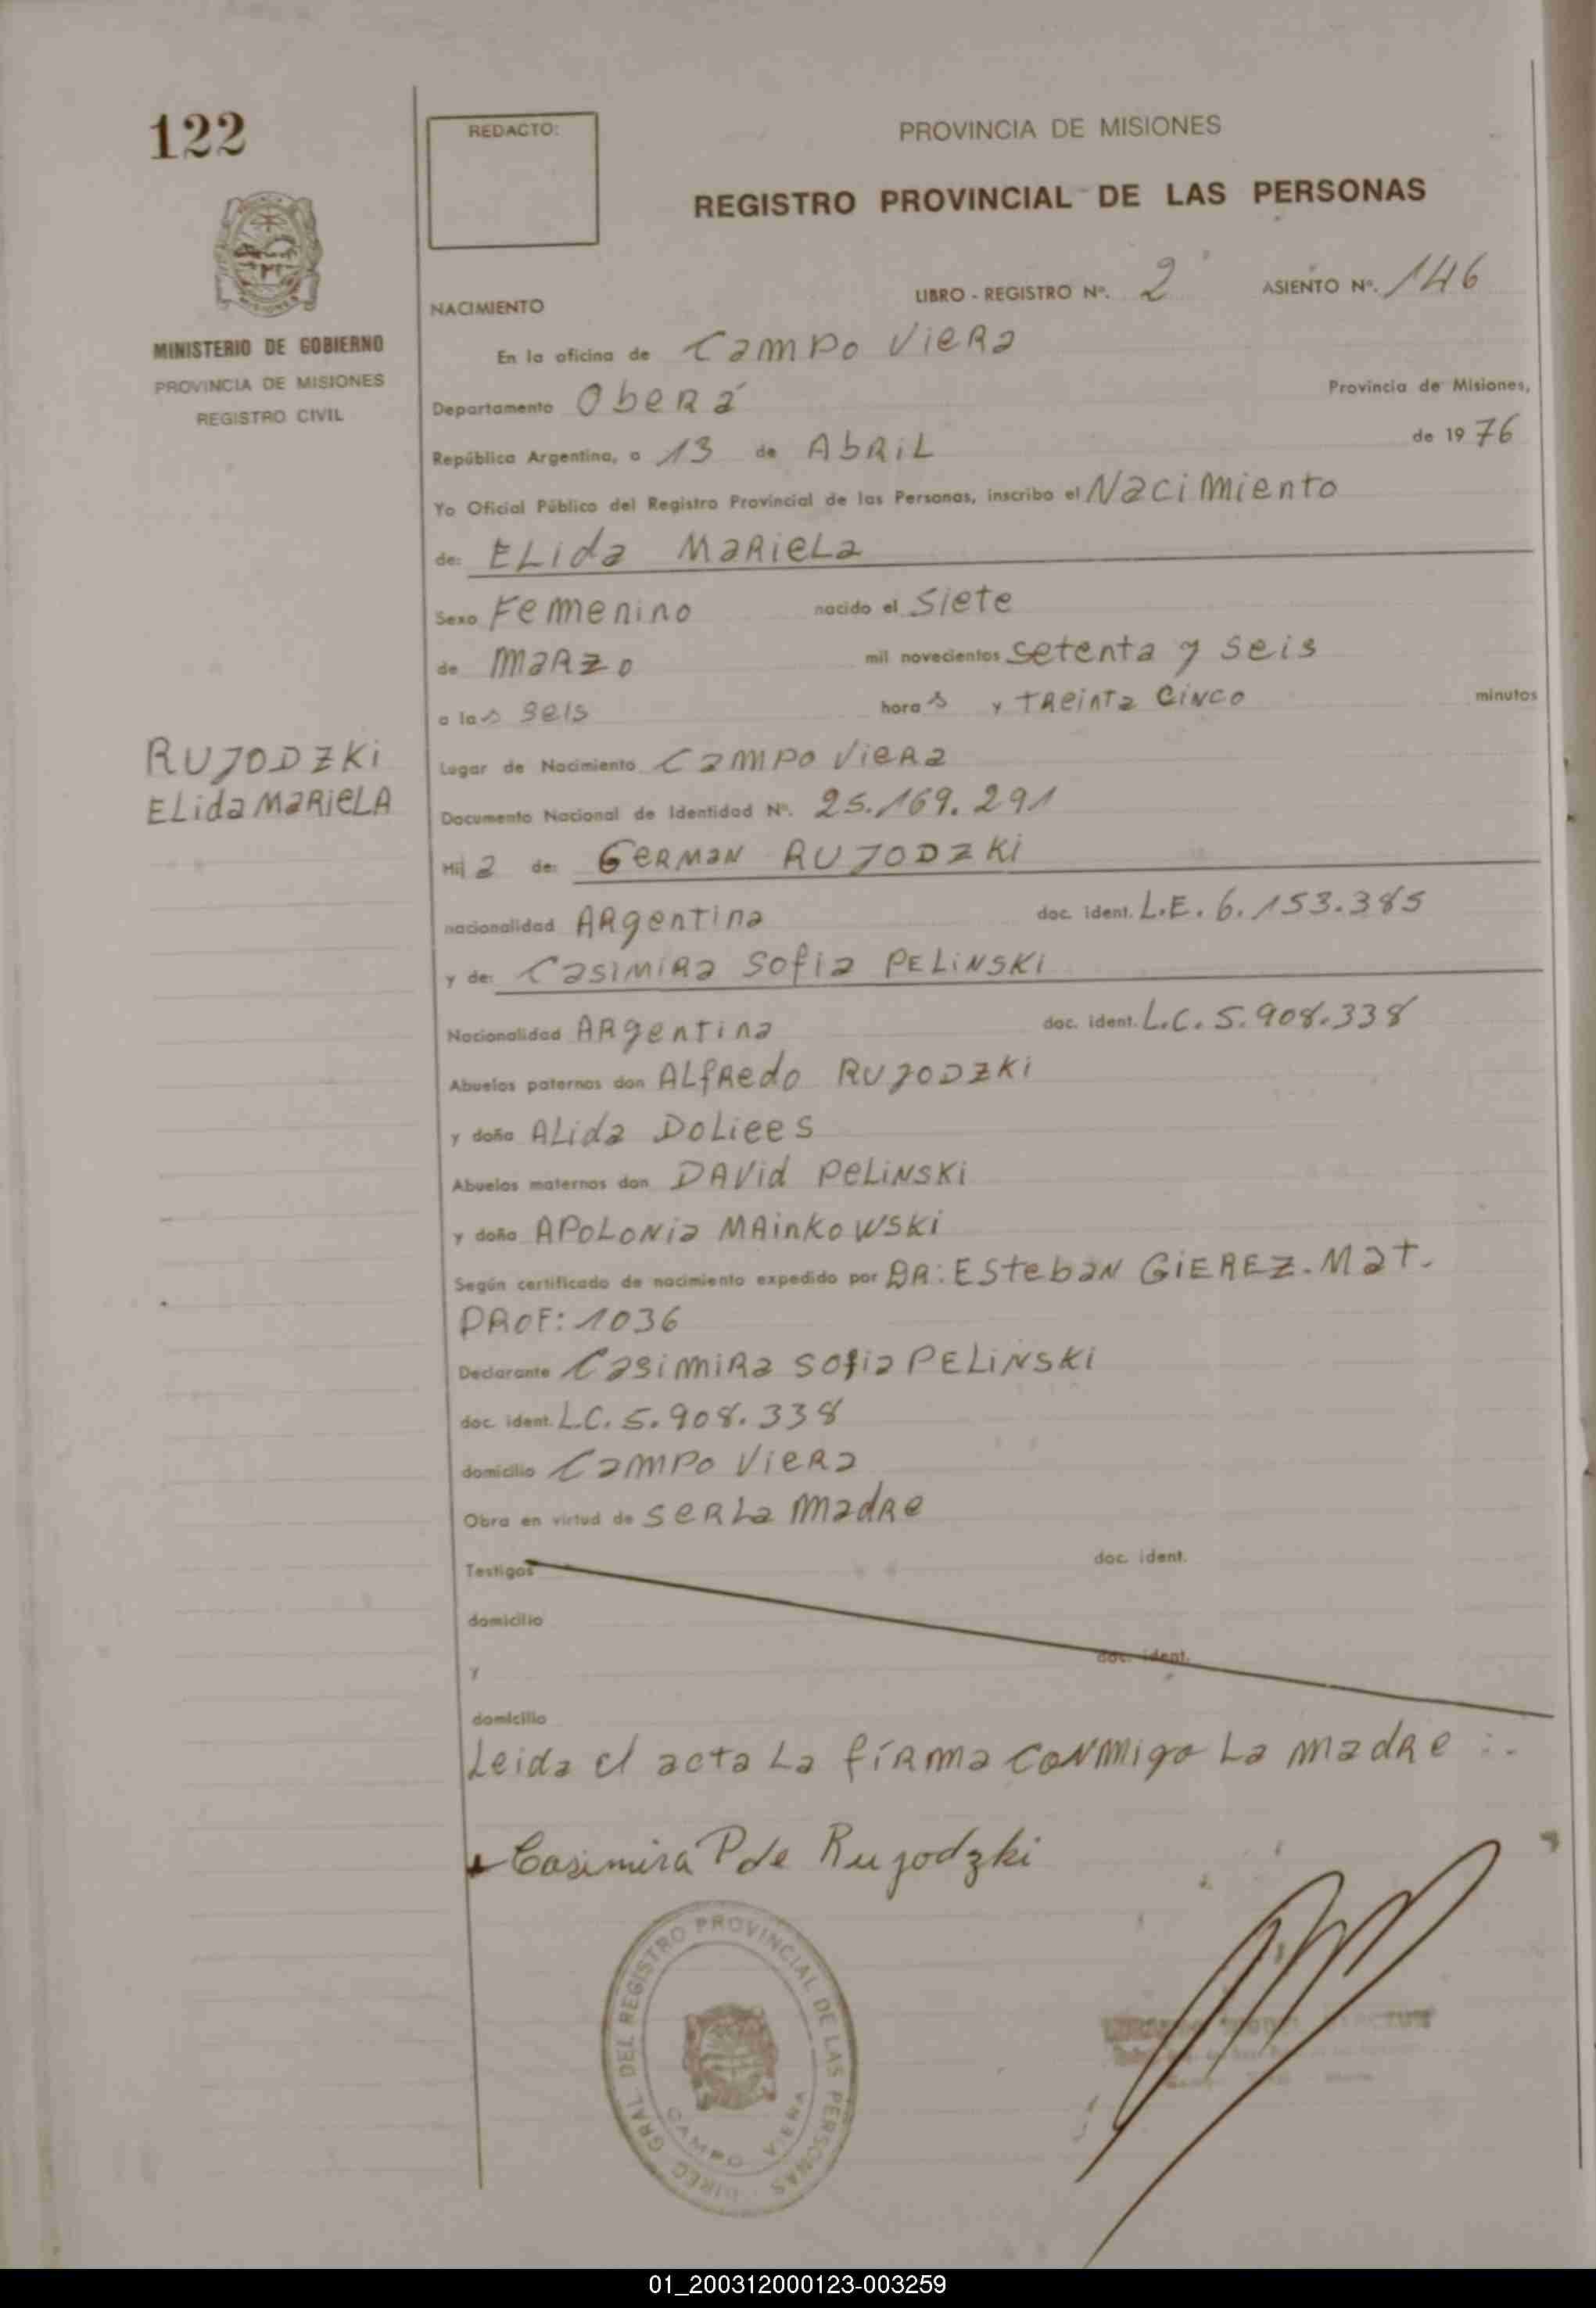 122
REDACTO:
PROVINCIA DE MISIONES
REGISTRO PROVINCIAL DE LAS PERSONAS
MINISTERIO DE GOBIERNO
PROVINCIA DE MISIONES
REGISTRO CIVIL
LIBRO - REGISTRO Nº. 2 ASIENTO Nº. 146
NACIMIENTO
En la oficina de Campo Viera
Departamento Oberá Provincia de Misiones,
República Argentina, a 13 de Abril de 1976
Yo Oficial Público del Registro Provincial de las Personas, inscribo el Nacimiento
de: Elida Mariela
Sexo Femenino nacido el Siete
de Marzo mil novecientos setenta y seis
a las seis horas y treinta cinco minutos
RUJODZKI
ELida MARIELA
Lugar de Nacimiento Campo Viera
Documento Nacional de Identidad Nº. 25.169.291
Hija de: GERMAN RUJODZKI
nacionalidad Argentina doc. ident. L.E. 6.153.385
y de: Casimira Sofia PELINSKI
Nacionalidad Argentina doc. ident. L.C. 5.908.338
Abuelos paternos don Alfredo RUJODZKI
y doña Alida Doliees
Abuelos maternos don David Pelinski
y doña Apolonia Mainkowski
Según certificado de nacimiento expedido por DR: Esteban GIEREZ. Mat.
PROF: 1036
Declarante Casimira Sofia PELINSKI
doc. ident. L.C. 5.908.338
domicilio Campo Viera
Obra en virtud de ser la madre
Testigos doc. ident.
domicilio
y doc. ident.
domicilio
Leida el acta la firma conmigo la madre :.-
Casimira P de Rujodzki
DIREC. GRAL. DEL REGISTRO PROVINCIAL DE LAS PERSONAS
CAMPO VIERA
01_200312000123-003259